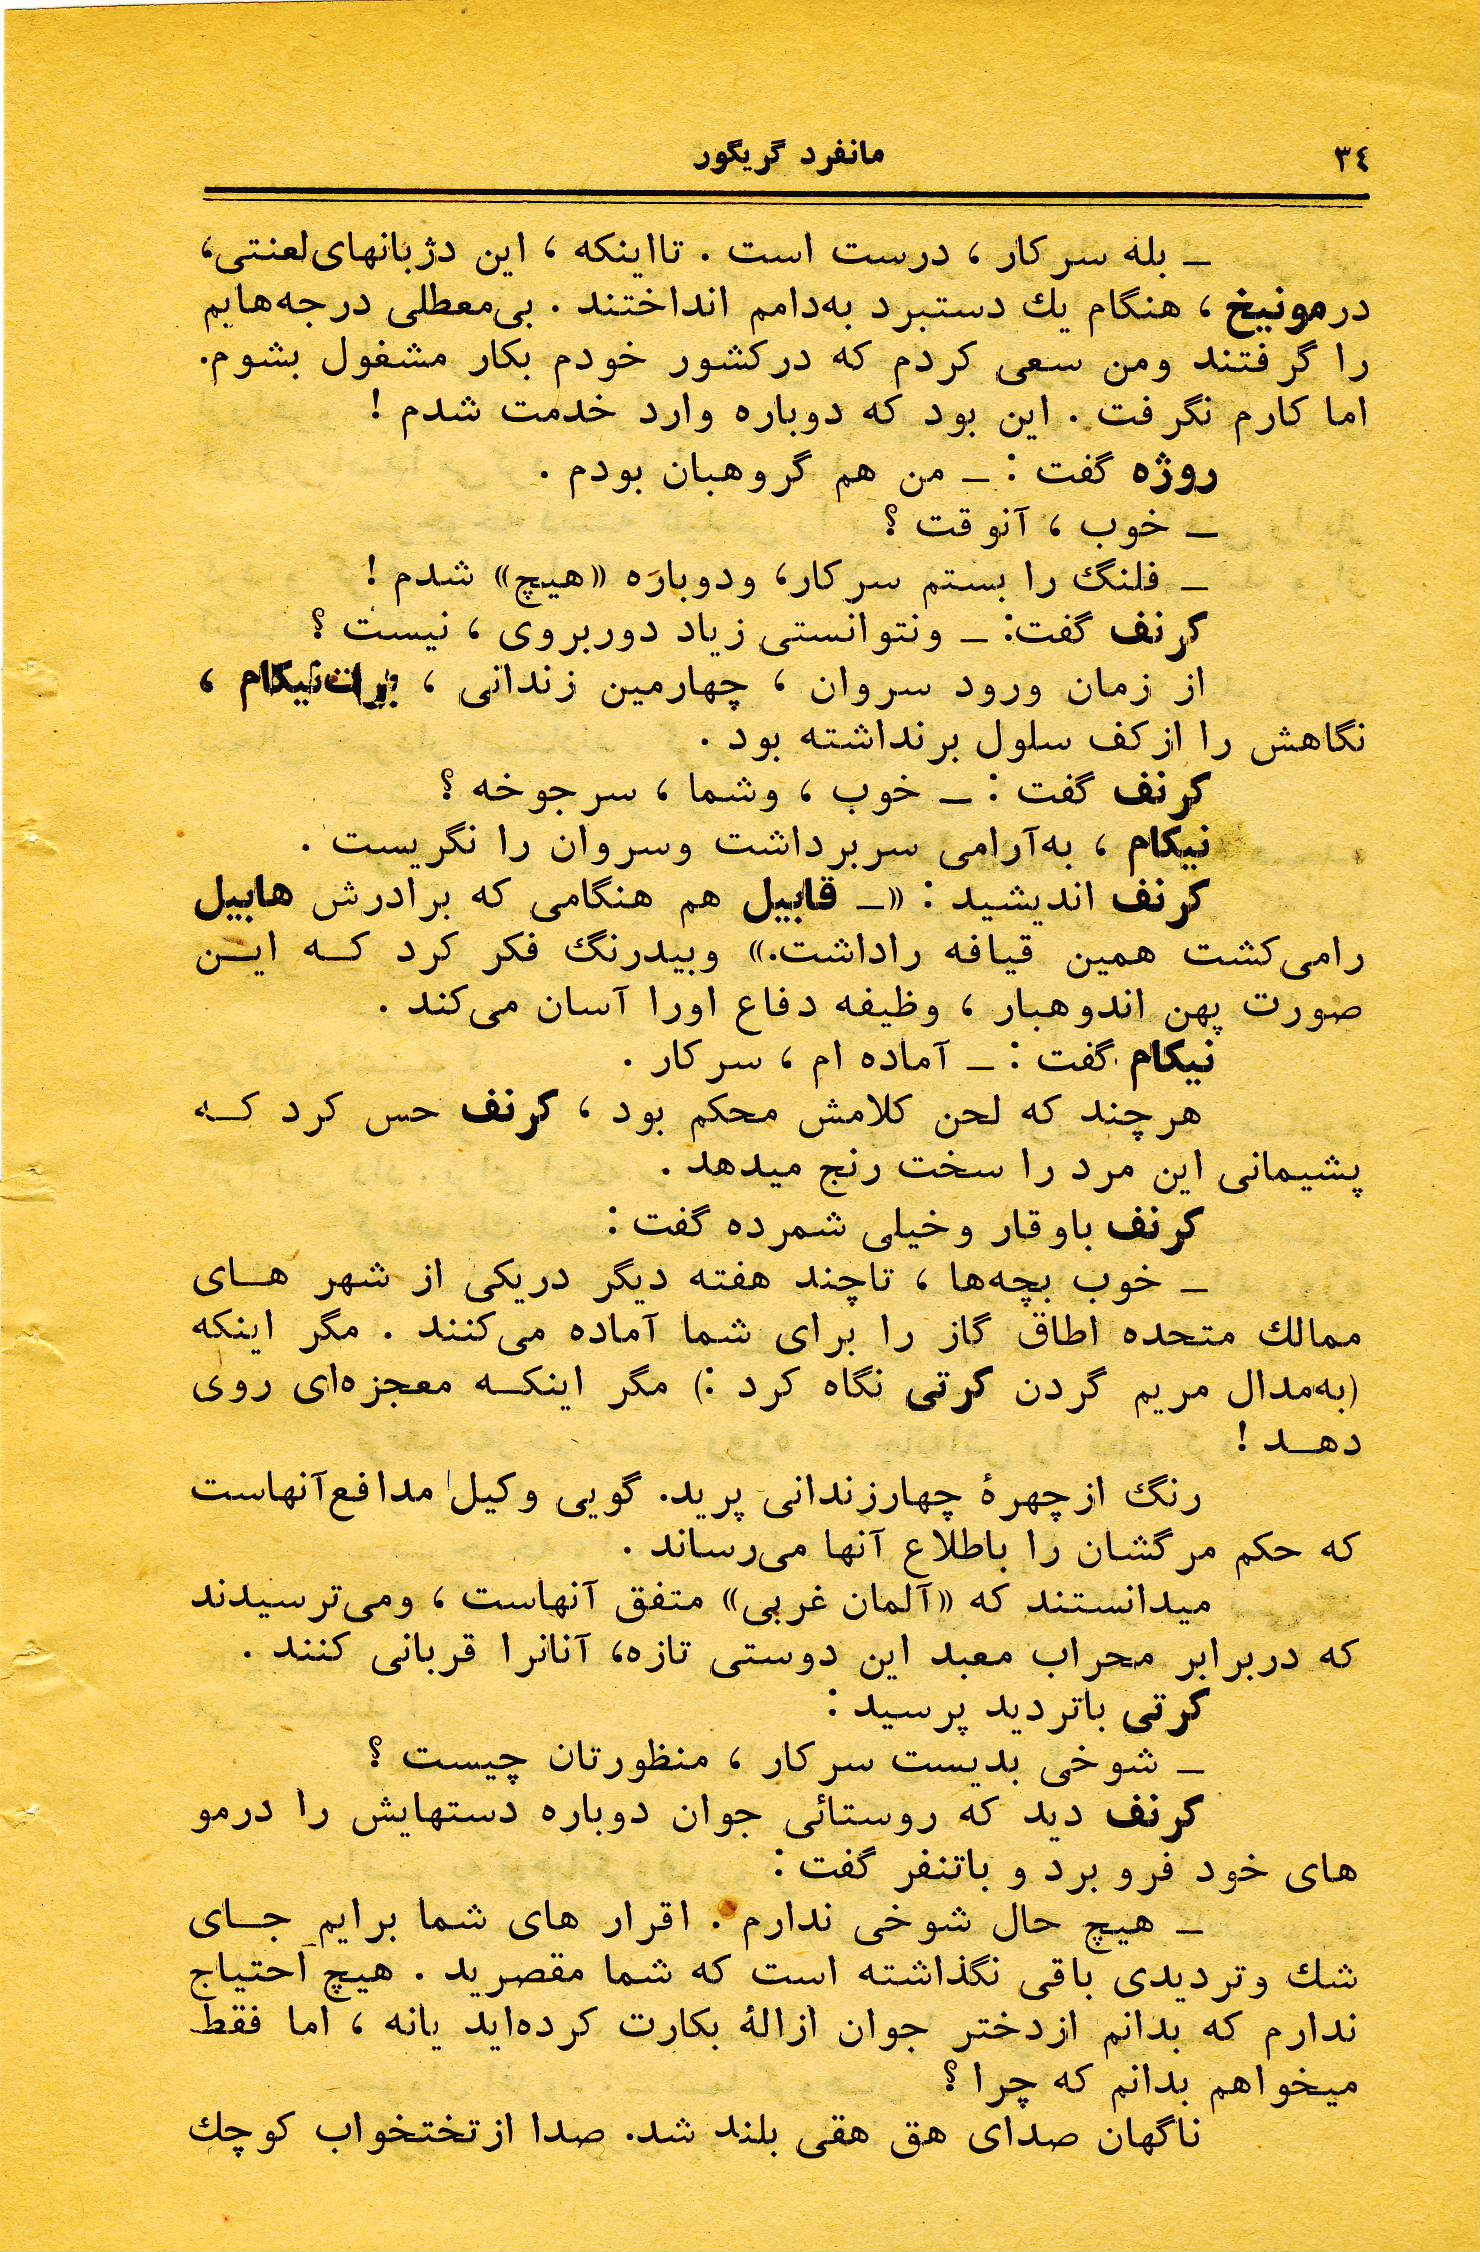 ٣٤
مانفرد گریگور
ـ بله سرکار ، درست است . تااینکه ، این دژبانهای‌لعنتی،
درمونیخ ، هنگام یك دستبرد به‌دامم انداختند . بی‌معطلی درجه‌هایم
را گرفتند ومن سعی کردم که درکشور خودم بکار مشغول بشوم.
اما کارم نگرفت . این بود که دوباره وارد خدمت شدم !
روژه گفت : ـ من هم گروهبان بودم .
ـ خوب ، آنوقت ؟
ـ فلنگ را بستم سرکار، ودوباره «هیچ» شدم !
کرنف گفت: ـ ونتوانستی زیاد دوربروی ، نیست ؟
از زمان ورود سروان ، چهارمین زندانی ، برت‌نیکام ،
نگاهش را ازکف سلول برنداشته بود .
کرنف گفت : ـ خوب ، وشما ، سرجوخه ؟
نیکام ، به‌آرامی سربرداشت وسروان را نگریست .
کرنف اندیشید : «ـ قابیل هم هنگامی که برادرش هابیل
رامی‌کشت همین قیافه راداشت.» وبیدرنگ فکر کرد کـه ایـن
صورت پهن اندوهبار ، وظیفه دفاع اورا آسان می‌کند .
نیکام گفت : ـ آماده ام ، سرکار .
هرچند که لحن کلامش محکم بود ، کرنف حس کرد کـه
پشیمانی این مرد را سخت رنج میدهد .
کرنف باوقار وخیلی شمرده گفت :
ـ خوب بچه‌ها ، تاچند هفته دیگر دریکی از شهر هـای
ممالك متحده اطاق گاز را برای شما آماده می‌کنند . مگر اینکه
(به‌مدال مریم گردن کرتی نگاه کرد :) مگر اینکـه معجزه‌ای روی
دهـد !
رنگ ازچهرهٔ چهارزندانی پرید. گویی وکیل مدافع‌آنهاست
که حکم مرگشان را باطلاع آنها می‌رساند .
میدانستند که «آلمان غربی» متفق آنهاست ، ومی‌ترسیدند
که دربرابر محراب معبد این دوستی تازه، آنانرا قربانی کنند .
کرتی باتردید پرسید :
ـ شوخی بدیست سرکار ، منظورتان چیست ؟
کرنف دید که روستائی جوان دوباره دستهایش را درمو
های خود فرو برد و باتنفر گفت :
ـ هیچ حال شوخی ندارم . اقرار های شما برایم جـای
شك وتردیدی باقی نگذاشته است که شما مقصرید . هیچ احتیاج
ندارم که بدانم ازدختر جوان ازالهٔ بکارت کرده‌اید یانه ، اما فقط
میخواهم بدانم که چرا ؟
ناگهان صدای هق هقی بلند شد. صدا ازتختخواب کوچك